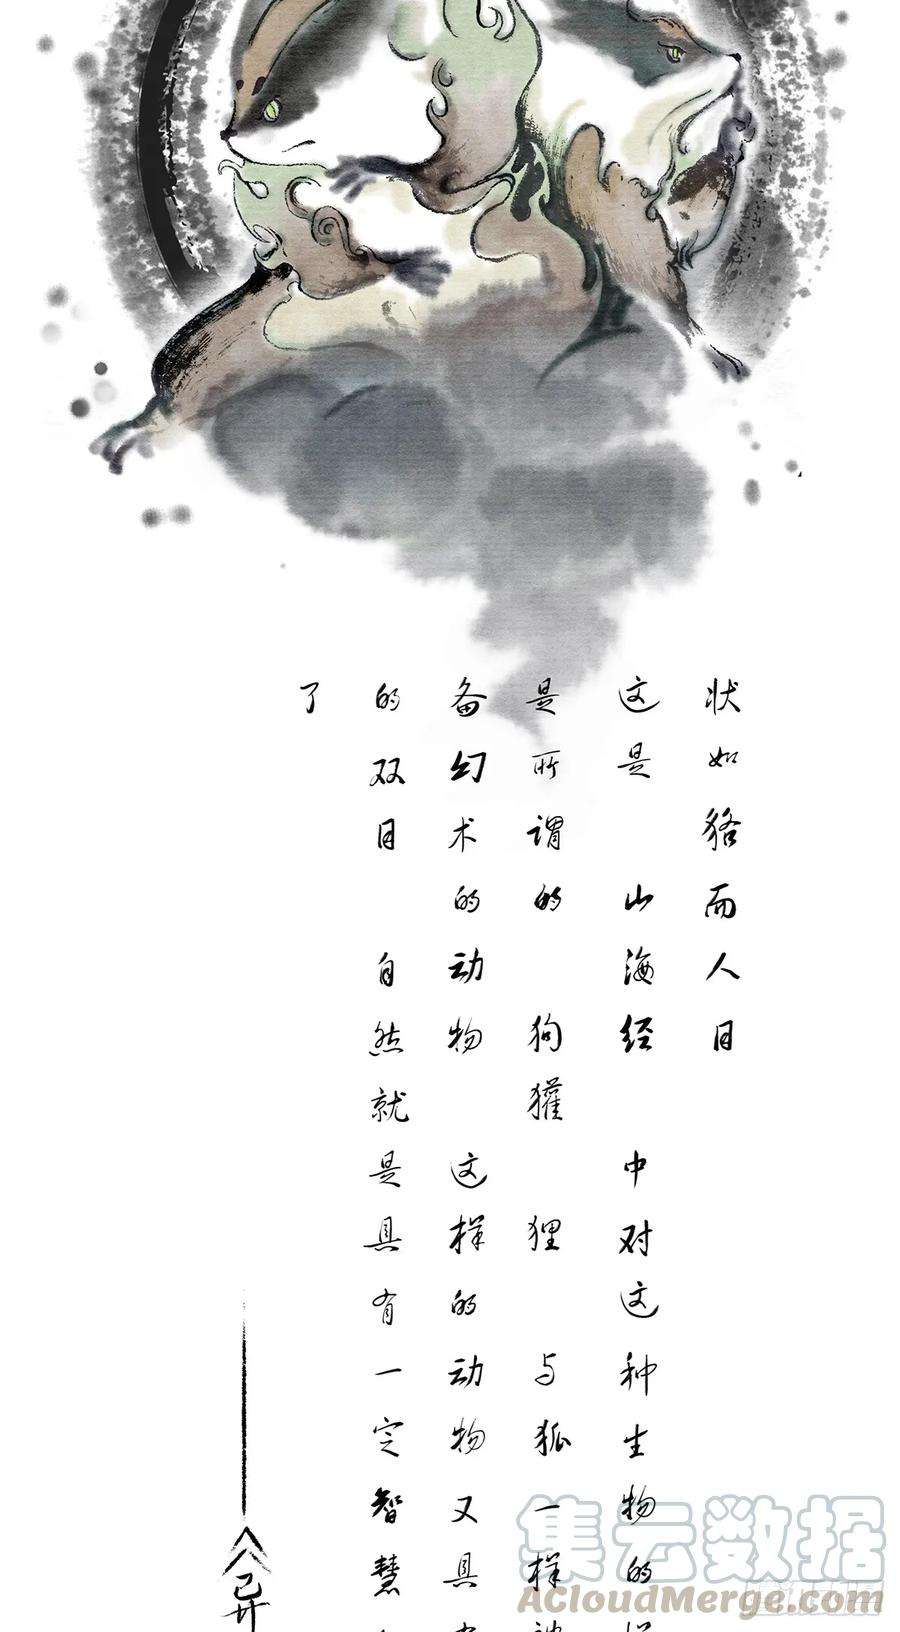 状如狢而人目
这是 山海经 中对这种生物的
是所谓的 狗獾 狸 与狐一样
备幻术的动物 这样的动物又具
的双目 自然就是具有一定智慧
了
《异
集云数据
ACloudMerge.com